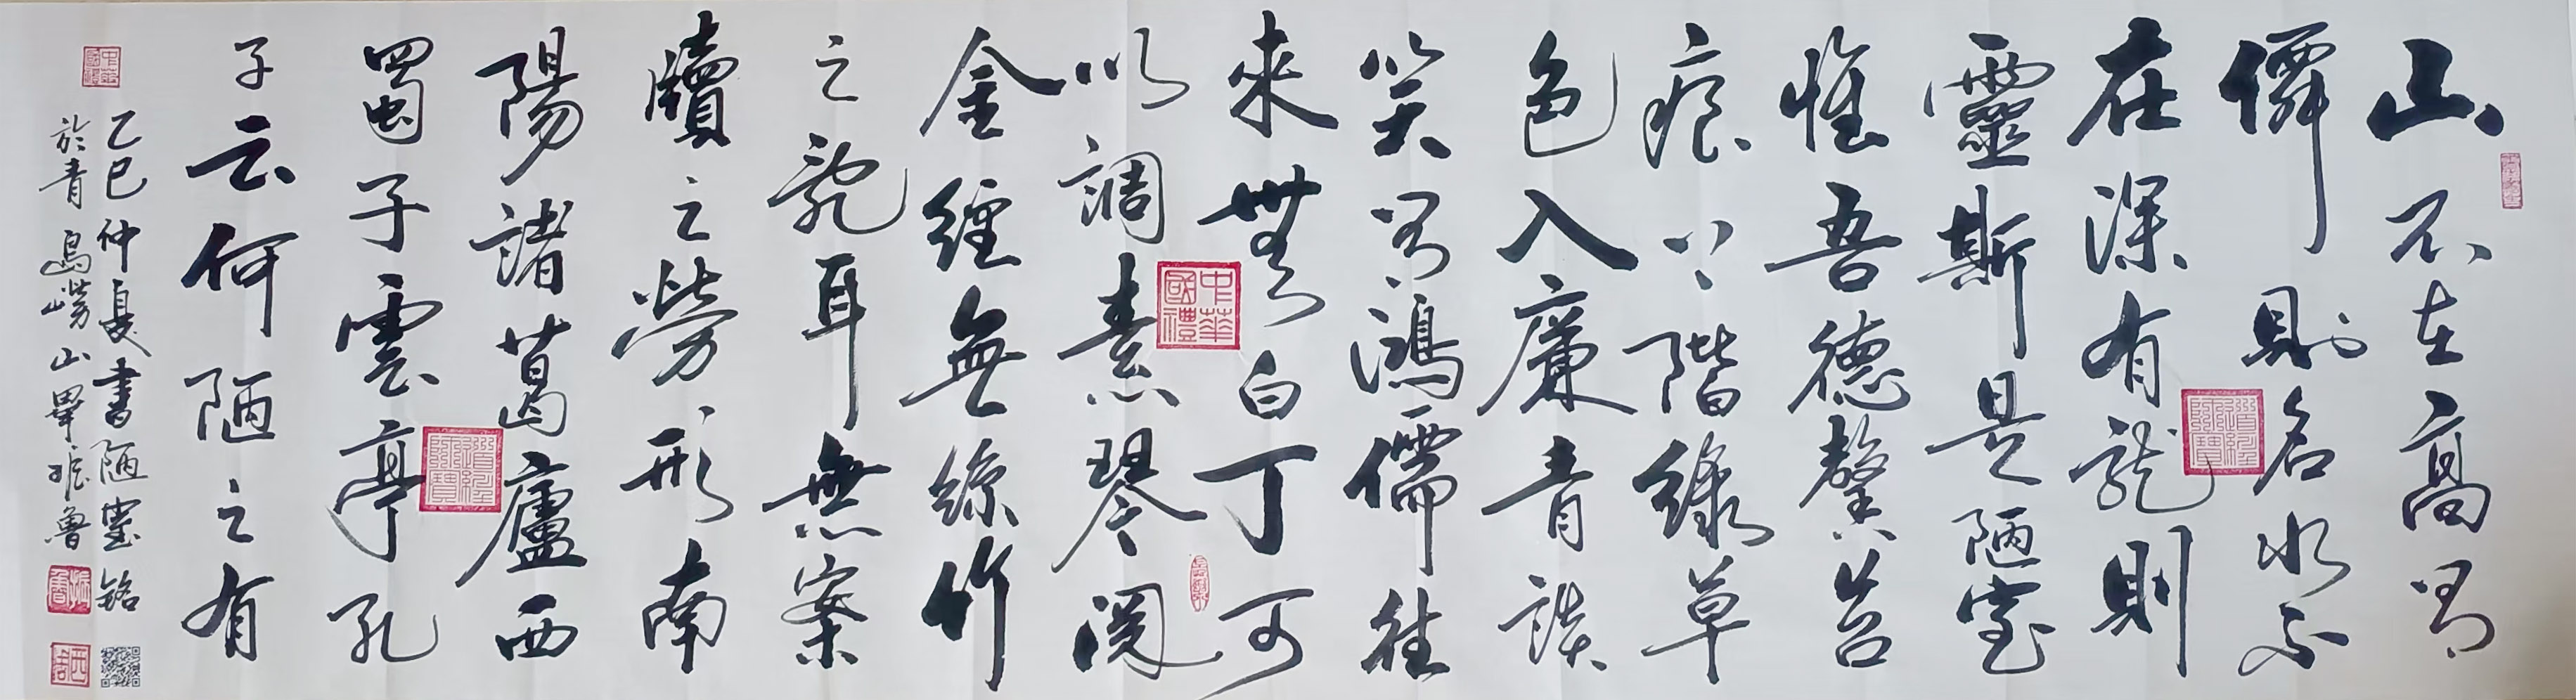 山不在高有
僊則名水不
在深有龍則
靈斯是陋室
惟吾德馨苔
痕上階綠草
色入廉青談
笑有鴻儒往
來無白丁可
以調素琴閱
金經無絲竹
之亂耳無案
牘之勞形南
陽諸葛廬西
蜀子雲亭孔
子云何陋之有
乙巳仲夏書陋室銘
於青島嶗山畢振魯
中華國禮
道經師寶
道經師寶
中華國禮
振魯